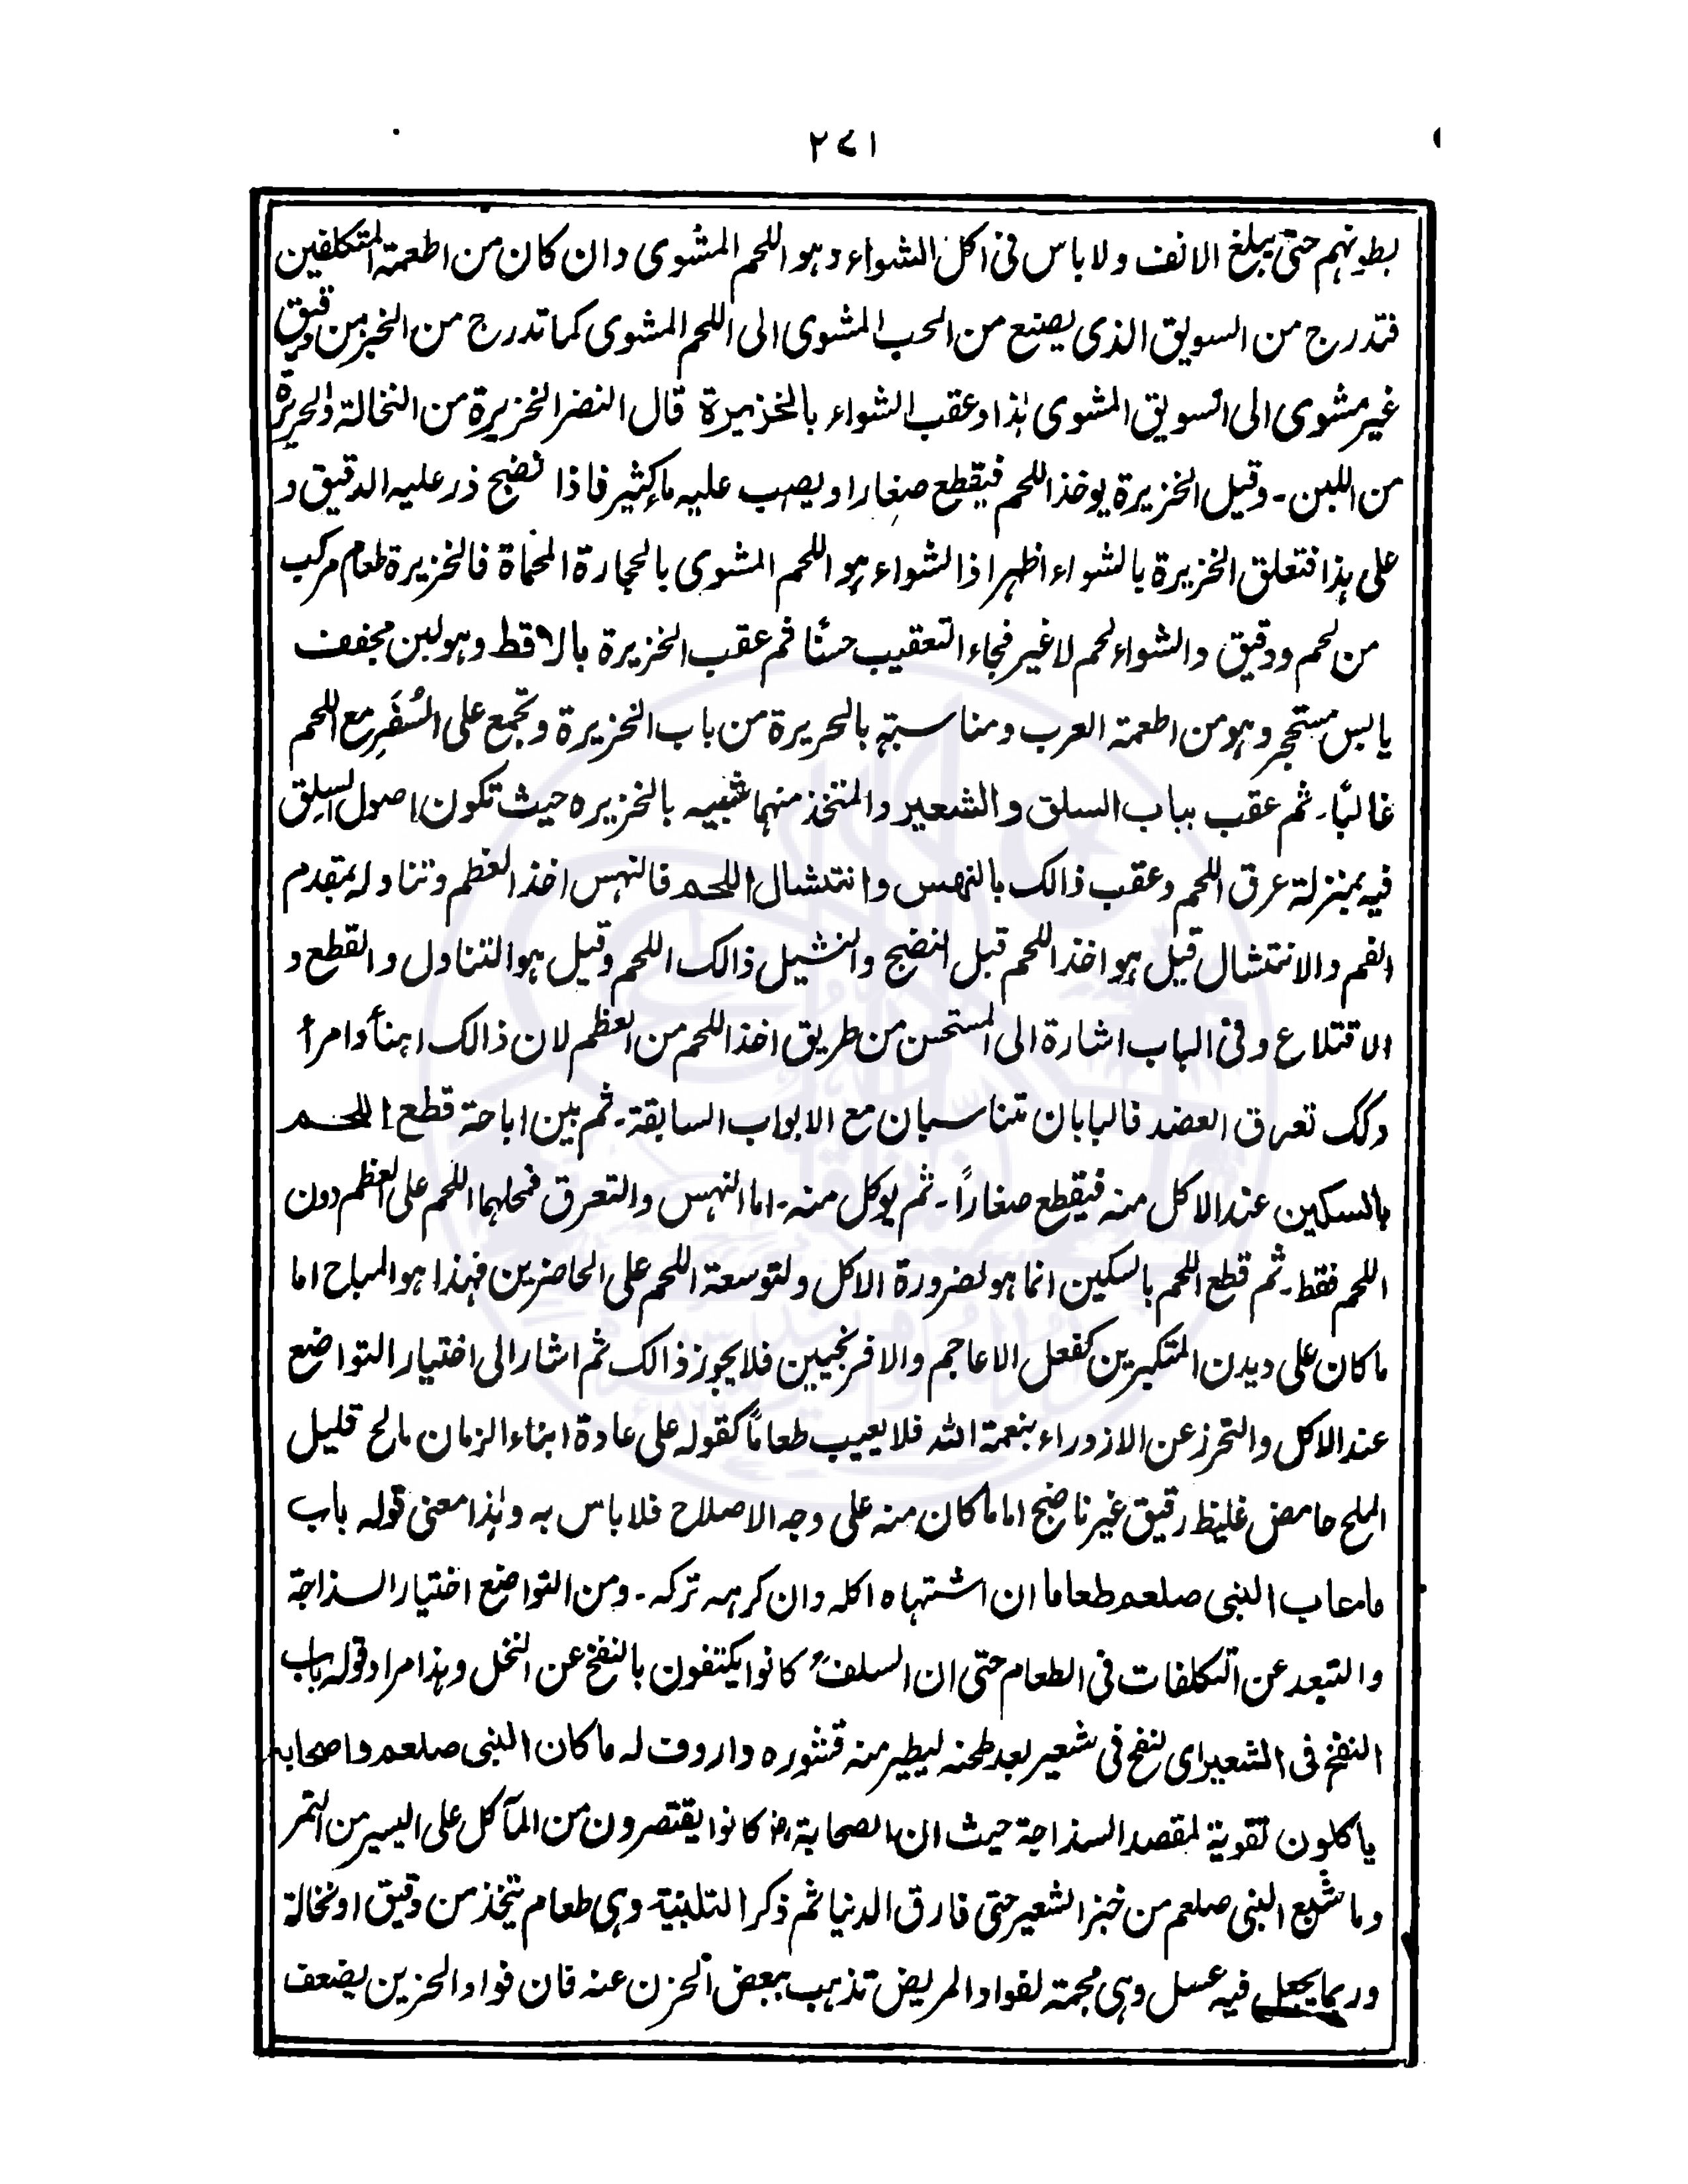 ٢٧١
بطونهم حتى يبلغ الانف ولا باس فى اكل الشواء وهو اللحم المشوى وان كان من اطعمة المتكلفين
فتدرج من السويق الذى يصنع من الحب المشوى الى اللحم المشوى كما تدرج من الخبز من دقيق
غير مشوى الى السويق المشوى هٰذا وعقب الشواء بالخزيرة قال النضر الخزيرة من النخالة والحريرة
من اللبن ۔ وقيل الخزيرة يوخذ اللحم فيقطع صغارا ويصب عليه ماء كثير فاذا نضج ذر عليه الدقيق و
على هذا فتعلق الخزيرة بالشواء اظهر اذ الشواء هو اللحم المشوى بالحجارة المحماة فالخزيرة طعام مركب
من لحم ودقيق والشواء لحم لاغير فجاء التعقيب حسنًا ثم عقب الخزيرة بالاقط وهو لبن مجفف
يابس مستحجر وهو من اطعمة العرب ومناسبته بالحريرة من باب الخزيرة وتجمع على السُفَرِ مع اللحم
غالبًا۔ ثم عقب بباب السلق والشعير والمتخذ منهما شبيه بالخزيره حيث تكون اصول السلق
فيه بمنزلة عرق اللحم وعقب ذالك بالنهس وانتشال اللحم فالنهس اخذ العظم وتناوله بمقدم
الفم والانتشال قيل هو اخذ اللحم قبل النضج والنشيل ذالك اللحم وقيل هو التناول والقطع و
الاقتلاع وفى الباب اشارة الى المستحسن من طريق اخذ اللحم من العظم لان ذالك اهنأ وامرأ
وكك تعرق العضد فالبابان تتناسبان مع الابواب السابقة۔ ثم بين اباحة قطع اللحم
بالسكين عند الاكل منه فيقطع صغارًا۔ ثم يوكل منه۔ اما النهس والتعرق فمحلهما اللحم على العظم دون
اللحم فقط۔ ثم قطع اللحم بالسكين انما هو لضرورة الاكل ولتوسعة اللحم على الحاضرين فهذا هو المباح اما
ما كان على ديدن المتكبرين كفعل الاعاجم والافرنجيين فلا يجوز ذالك ثم اشار الى اختيار التواضع
عند الاكل والتحرز عن الازدراء بنعمة الله فلا يعيب طعامًا كقوله على عادة ابناء الزمان مالح قليل
الملح حامض غليظ رقيق غير ناضج اما ما كان منه على وجه الاصلاح فلا باس به وهٰذا معنى قوله باب
ما عاب النبى صلعم طعاما ان اشتهاه اكله وان كرهه تركه ۔ ومن التواضع اختيار السذاجة
والتبعد عن التكلفات فى الطعام حتى ان السلف كانوا يكتفون بالنفخ عن النخل وهذا مراد قوله باب
النفخ فى الشعير اى نفخ فى شعير بعد طحنه ليطير منه قشوره واردف له ما كان النبى صلعم واصحابه
ياكلون تقوية لمقصد السذاجة حيث ان الصحابة رض كانوا يقتصرون من المآكل على اليسير من التمر
وما شبع النبى صلعم من خبز الشعير حتى فارق الدنيا ثم ذكر التلبنية وهى طعام يتخذ من دقيق او نخالة
وربما يجعل فيه عسل وهى مجمة لفواد المريض تذهب ببعض الحزن عنه فان فواد الحزين يضعف